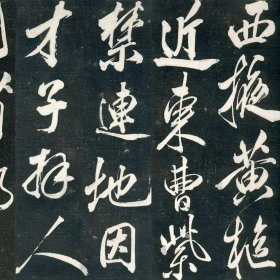 西掖黄樞
近東曹紫
禁連地因
才子拜人